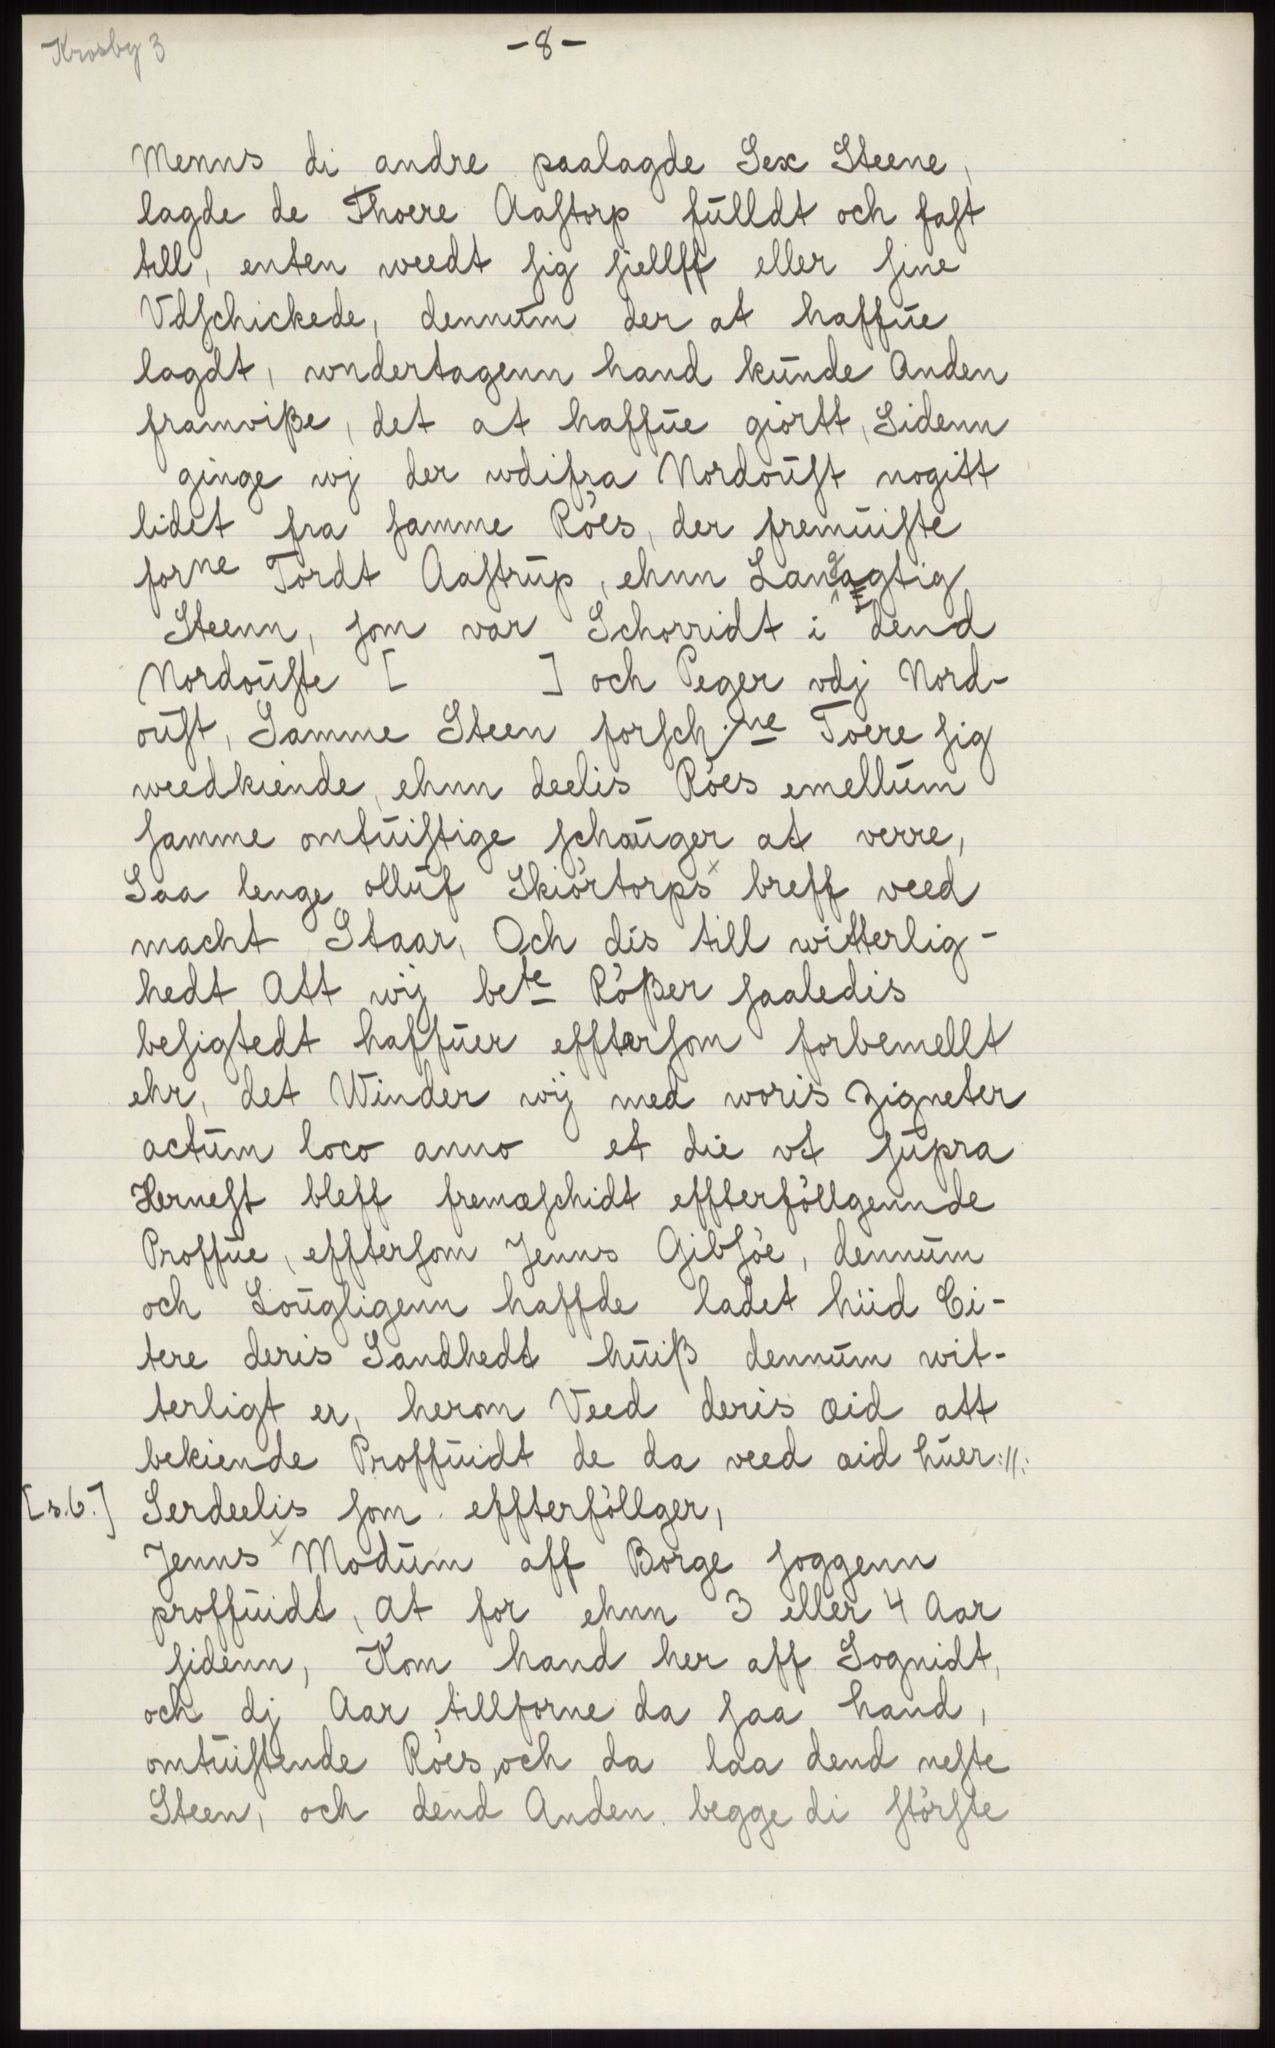 Krosby 3
-8-
Menns di andre paalagde Sex Steene,
lagde de Thoere Aaſtorp fulldt och faſt
till, enten weedt ſig ſiellff eller ſine
Vdſchickede, dennum der at haffue
lagdt, wndertagenn hand kunde Anden
framviße, det at haffue giortt, Sidenn
ginge wj der wdifra Nordouſt nogitt
lidet fra ſamme Röes, der fremuiſte
forne Tordt Aaſtrup, ehnn Langagtig
Steenn, ſom var Schorridt i dend
Nordouſte [ ] och Peger vdj Nord-
ouſt, Samme Steen forſch: ne Toere ſig
weedkiende, ehnn deelis Röes emellum
ſamme omtuiſtige ſchouger at verre,
Saa lenge olluf Skiörtorps x breff veed
macht Staar, Och dis till witterlig-
hedt Att wij bete Rößer ſaaledis
beſigtedt haffuer efftersom forbemellt
ehr, det Winder wij med woris Zigneter
actum loco anno et die vt ſupra
Herneſt bleff fremæſchidt effterföllgennde
Proffue, effterſom Jenns Gibſöe, dennum
och Lougligenn haffde ladet hiid Ci-
tere deris Sandhedt huiß dennum wit-
terligt er, herom Veed deris æid att
bekiende Proffuidt de da veed æid huer://:
[s.6.] Serdeelis ſom effterföllger,
Jenns x Modum aff Borge ſoggenn
proffuidt, at for ehnn 3 eller 4 Aar
ſidenn, Kom hand her aff Sognidt,
och dj Aar tillforne da ſaa hand,
omtuiſtende Röes, och da laa dend neſte
Steen, och dend Anden begge di störſte